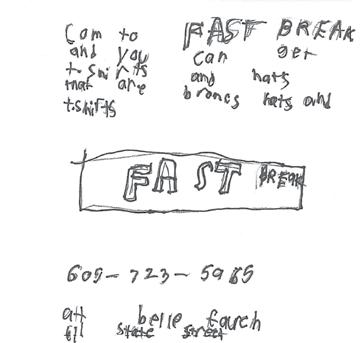 Com to FAST BREAK
and you can get
t-shirts and hats
that are broncs hats and
t.shirts
FAST BREAK
605-723-5985
att belle fourch
611 state street